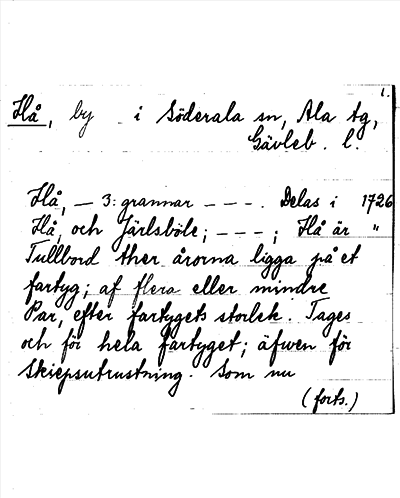 1.
Hå, by i Söderala sn, Ala tg,
Gävleb. l.
Hå, — 3: grannar - - - . Delas i 1726
Hå, och Järlsböle; - - - ; Hå är "
Tullbord ther årorna ligga på et
fartyg; af flera eller mindre
Par, efter fartygets storlek. Tages
och för hela fartyget; äfwen för
Skiepsutrustning. Som nu
(forts.)